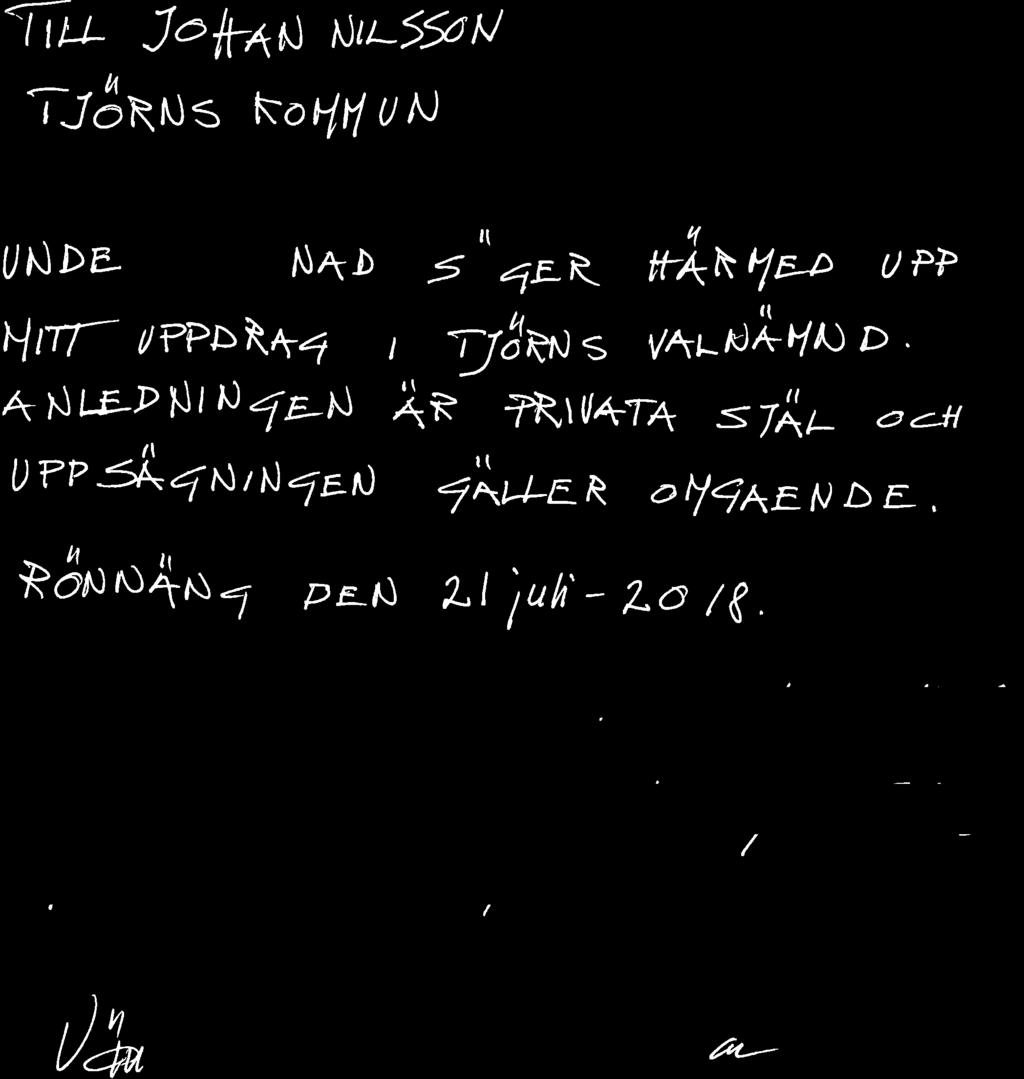 TILL JOHAN NILSSON
TJÖRNS KOMMUN
UNDE NAD S GER HÄRMED UPP
MITT UPPDRAG I TJÖRNS VALNÄMND.
ANLEDNINGEN ÄR PRIVATA SJÄL OCH
UPPSÄGNINGEN GÄLLER OMGAENDE.
RÖNNÄNG DEN 21 juli - 2018.